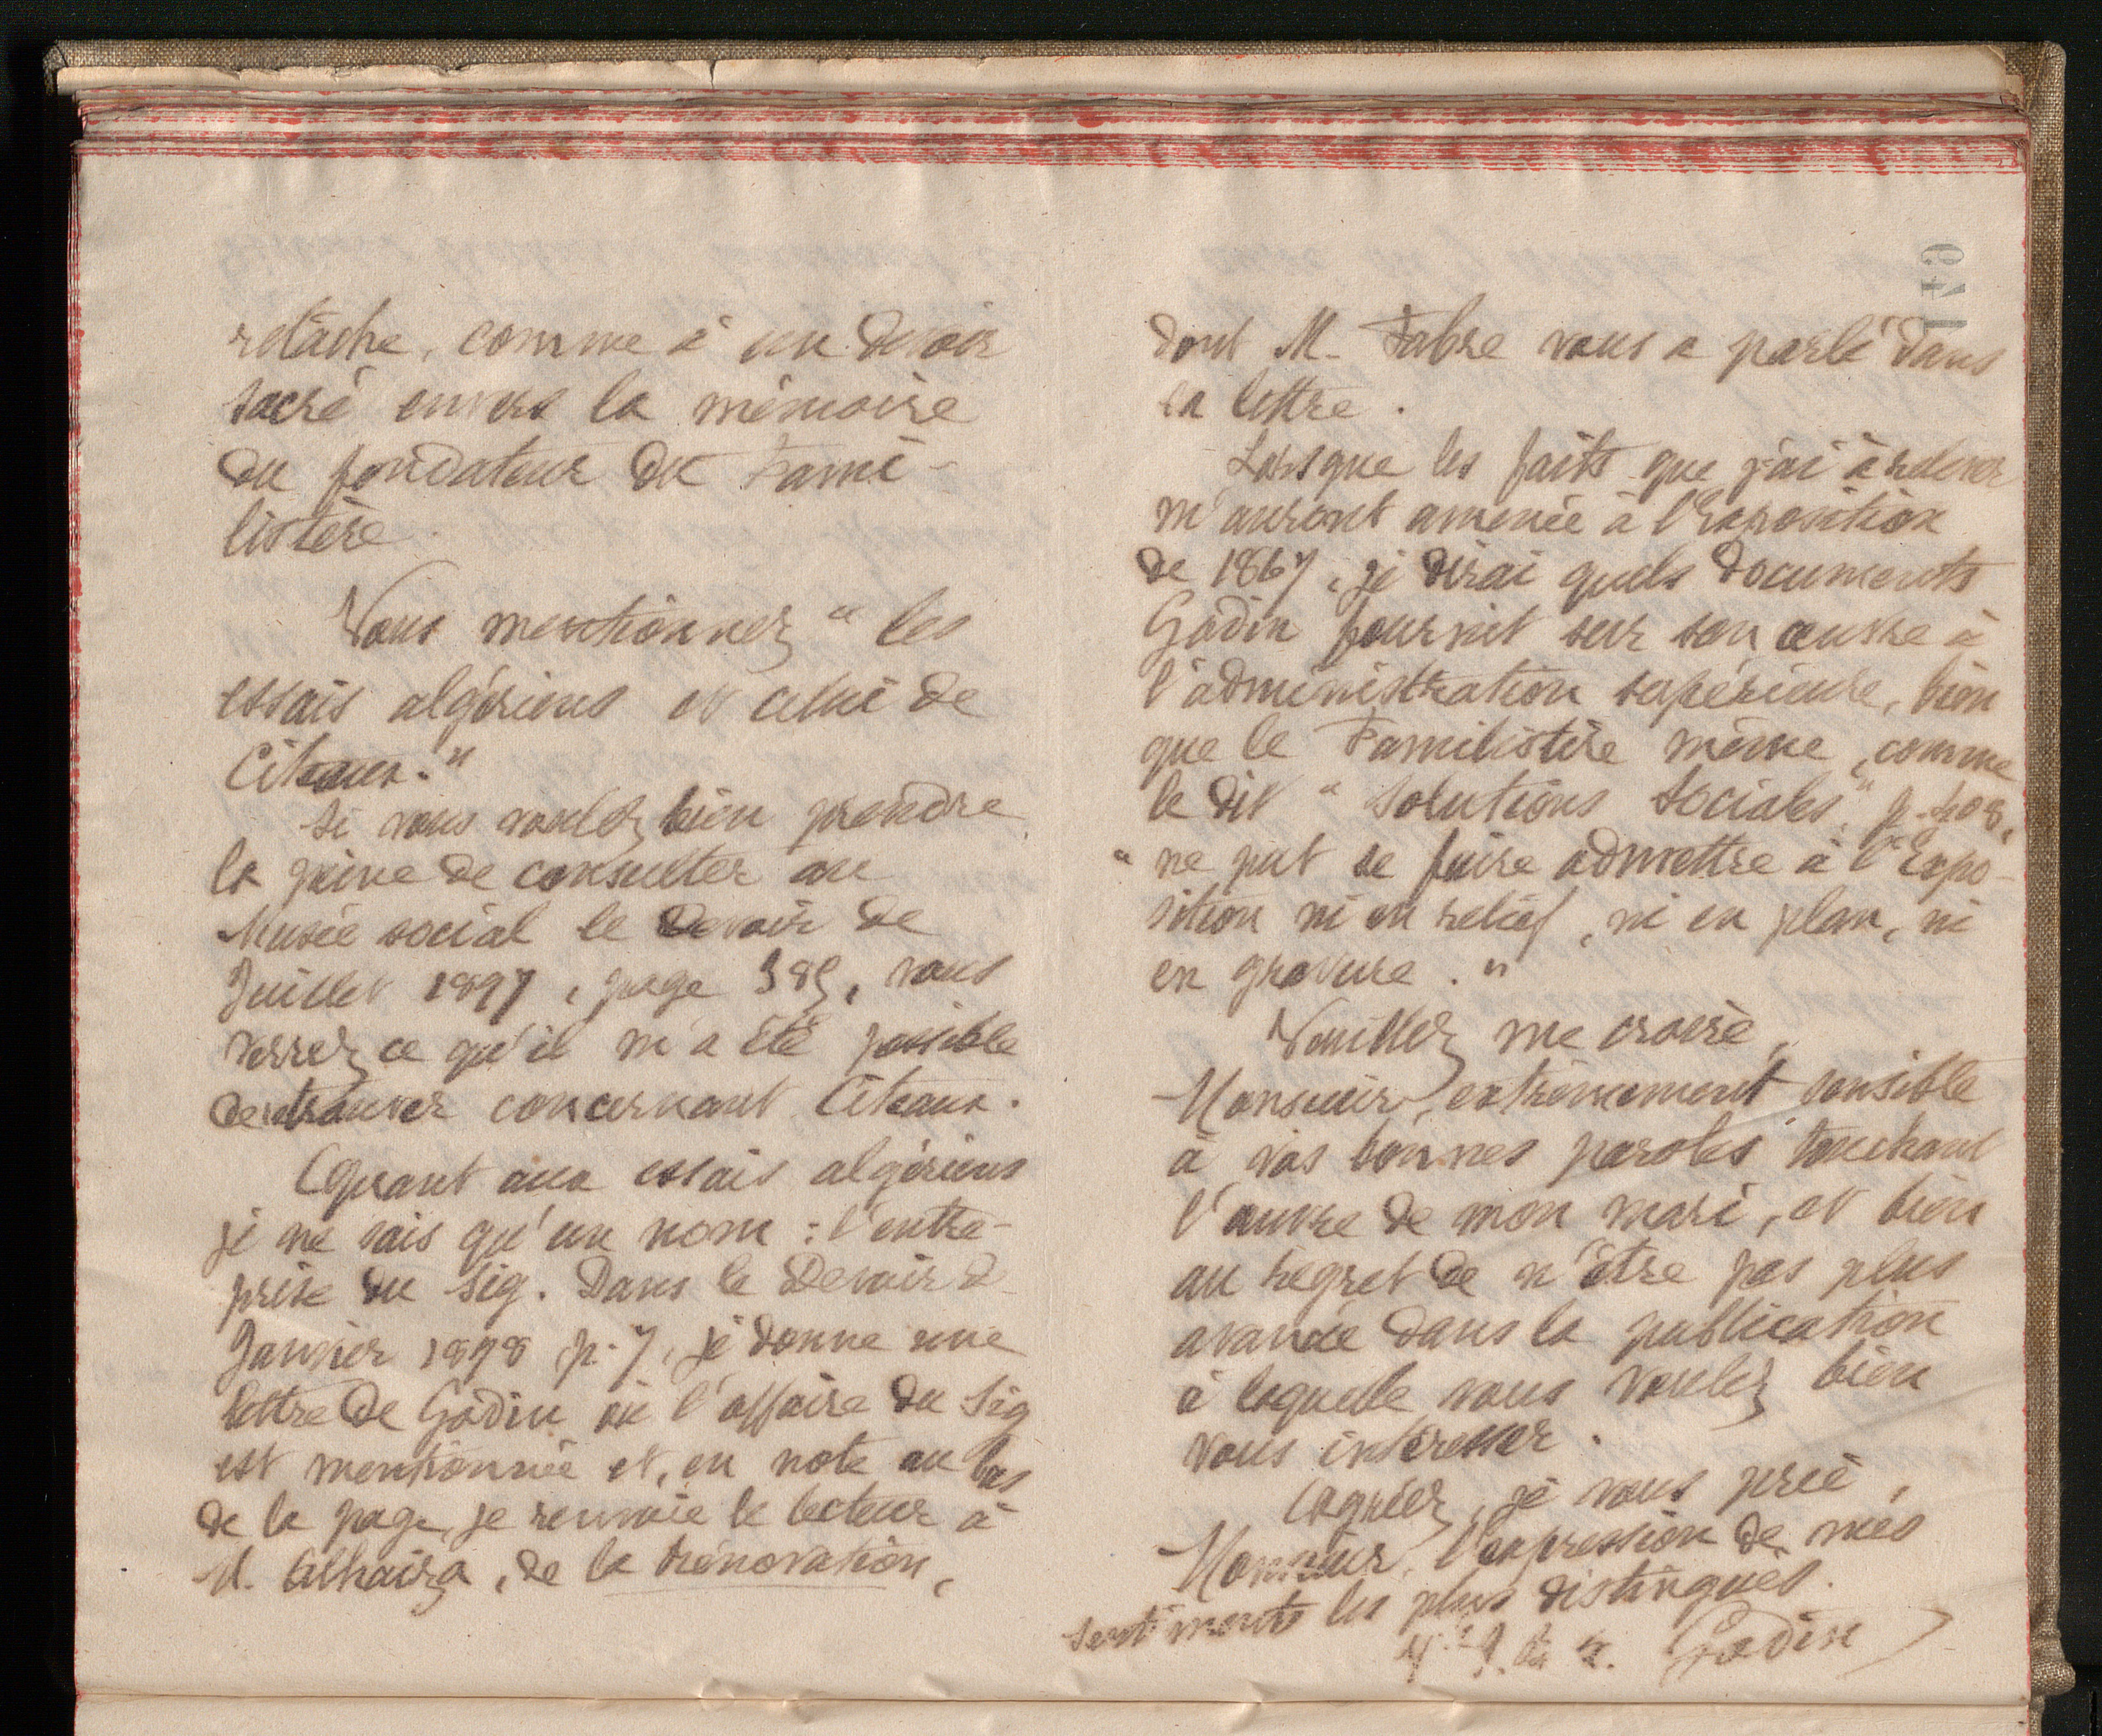 relâche, comme à un devoir
sacré envers la mémoire
du fondateur du Fami-
listère.
Vous mentionnez " les
essais algériens et celui de
Citeaux."
Si vous voulez bien prendre
la peine de consulter au
Musée social le Devoir de
Juillet 1897, page 385, vous
verrez ce qu'il m'a été possible
de retrouver concernant Citeaux.
Quant aux essais algériens
je ne sais qu'un nom : l'entre-
prise du Sig. Dans le Devoir d
Janvier 1898 p. 7, je donne une
lettre de Godin où l'affaire du Sig
est mentionnée et, en note au bas
de la page, je renvoie le lecteur à
M. Alhaiza, de la Rénovation,
dont M. Fabre vous a parlé dans
sa lettre.
Lorsque les faits que j'ai à relever
m'auront amenée à l'Exposition
de 1867, je dirai quels documents
Godin fournit sur son œuvre à
l'administration supérieure, bien
que le Familistère même, comme
le dit " Solutions Sociales " p. 408,
" ne put se faire admettre à l'Expo-
sition ni en relief, ni en plan, ni
en gravure. "
Veuillez me croire,
Monsieur, extrêmement sensible
à vos bonnes paroles touchant
l'œuvre de mon mari, et bien
au regret de n'être pas plus
avancée dans la publication
à laquelle vous voulez bien
vous intéresser.
Agréez, je vous prie,
Monsieur, l'expression de mes
sentiments les plus distingués.
Godin